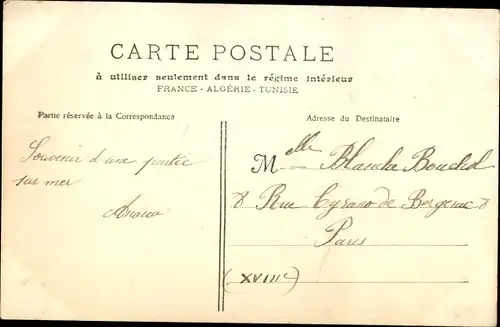 CARTE POSTALE
à utiliser seulement dans le régime intérieur
FRANCE - ALGÉRIE - TUNISIE
Partie réservée à la Correspondance
Adresse du Destinataire
Souvenir d'une partie
sur mer
Melle Blanche
8 Rue Cyrano de Bergerac 8
Paris
(XVIIIe)